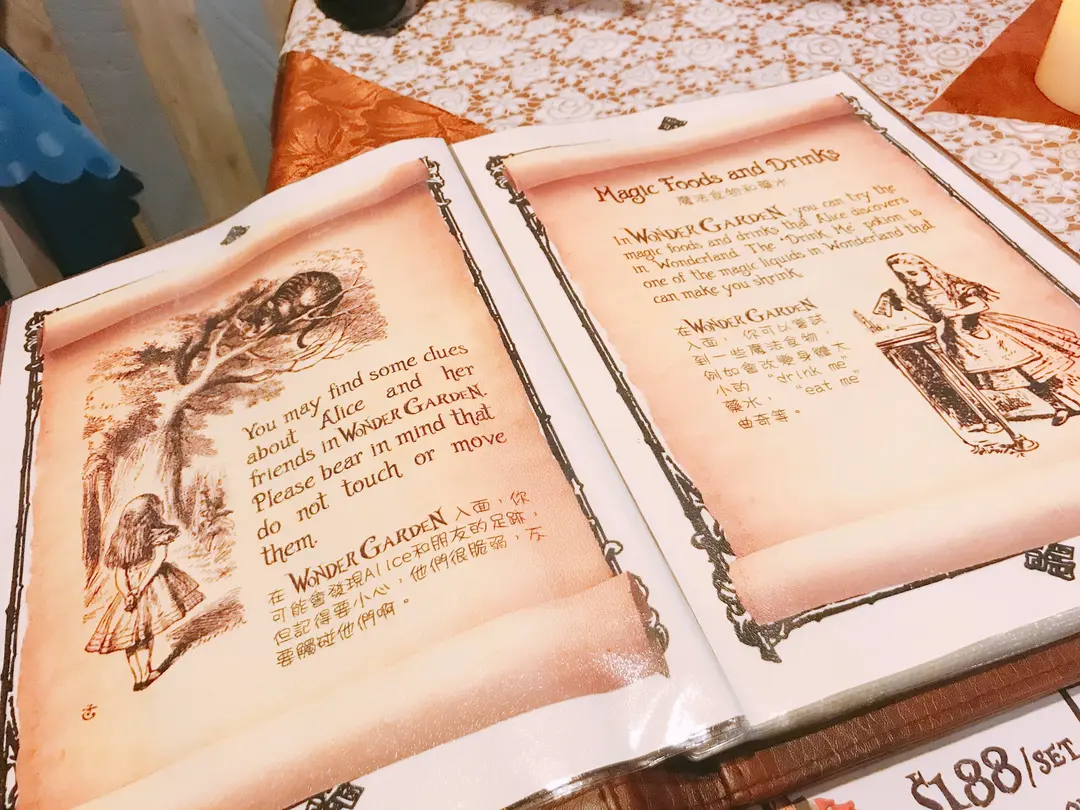 You may find some clues
about Alice and her
friends in WONDER GARDEN.
Please bear in mind that
do not touch or move
them.
在 WONDER GARDEN 入面，你
可能會發現Alice和朋友的足跡，
但記得要小心，他們很脆弱，不
要觸碰他們啊。
Magic Foods and Drinks
魔法食物和藥水
In WONDER GARDEN, you can try the
magic foods and drinks that Alice discovers
in Wonderland. The "Drink Me" potion is
one of the magic liquids in Wonderland that
can make you shrink.
在WONDER GARDEN
入面，你可以嘗試
到一些魔法食物，
例如會改變身體大
小的 "drink me"
藥水， "eat me"
曲奇等。
$1,88/SET